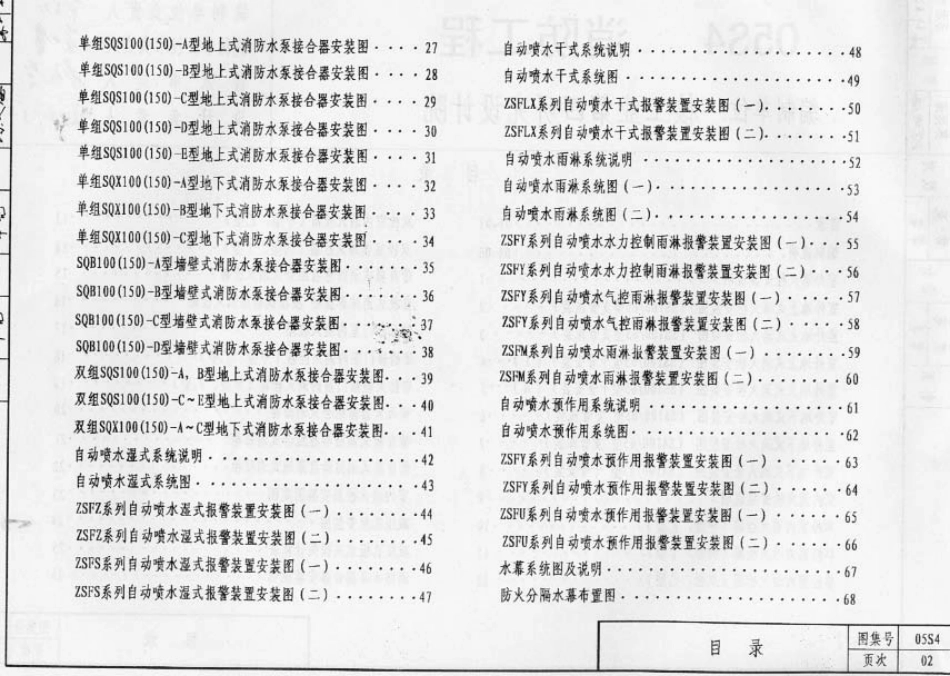 单组SQS100(150)-A型地上式消防水泵接合器安装图····27
单组SQS100(150)-B型地上式消防水泵接合器安装图····28
单组SQS100(150)-C型地上式消防水泵接合器安装图····29
单组SQS100(150)-D型地上式消防水泵接合器安装图····30
单组SQS100(150)-E型地上式消防水泵接合器安装图····31
单组SQX100(150)-A型地下式消防水泵接合器安装图····32
单组SQX100(150)-B型地下式消防水泵接合器安装图····33
单组SQX100(150)-C型地下式消防水泵接合器安装图····34
SQB100(150)-A型墙壁式消防水泵接合器安装图·······35
SQB100(150)-B型墙壁式消防水泵接合器安装图·······36
SQB100(150)-C型墙壁式消防水泵接合器安装图·······37
SQB100(150)-D型墙壁式消防水泵接合器安装图·······38
双组SQS100(150)-A,B型地上式消防水泵接合器安装图···39
双组SQS100(150)-C~E型地上式消防水泵接合器安装图···40
双组SQX100(150)-A~C型地下式消防水泵接合器安装图···41
自动喷水湿式系统说明··················42
自动喷水湿式系统图···················43
ZSFZ系列自动喷水湿式报警装置安装图(一)········44
ZSFZ系列自动喷水湿式报警装置安装图(二)········45
ZSFS系列自动喷水湿式报警装置安装图(一)········46
ZSFS系列自动喷水湿式报警装置安装图(二)········47
自动喷水干式系统说明·················48
自动喷水干式系统图··················49
ZSFLX系列自动喷水干式报警装置安装图(一)·······50
ZSFLX系列自动喷水干式报警装置安装图(二)·······51
自动喷水雨淋系统说明·················52
自动喷水雨淋系统图(一)···············53
自动喷水雨淋系统图(二)···············54
ZSFY系列自动喷水水力控制雨淋报警装置安装图(一)··55
ZSFY系列自动喷水水力控制雨淋报警装置安装图(二)··56
ZSFY系列自动喷水气控雨淋报警装置安装图(一)····57
ZSFY系列自动喷水气控雨淋报警装置安装图(二)····58
ZSFM系列自动喷水雨淋报警装置安装图(一)·······59
ZSFM系列自动喷水雨淋报警装置安装图(二)·······60
自动喷水预作用系统说明················61
自动喷水预作用系统图·················62
ZSFY系列自动喷水预作用报警装置安装图(一)······63
ZSFY系列自动喷水预作用报警装置安装图(二)······64
ZSFU系列自动喷水预作用报警装置安装图(一)······65
ZSFU系列自动喷水预作用报警装置安装图(二)······66
水幕系统图及说明···················67
防火分隔水幕布置图··················68
目录
图集号 05S4
页次 02